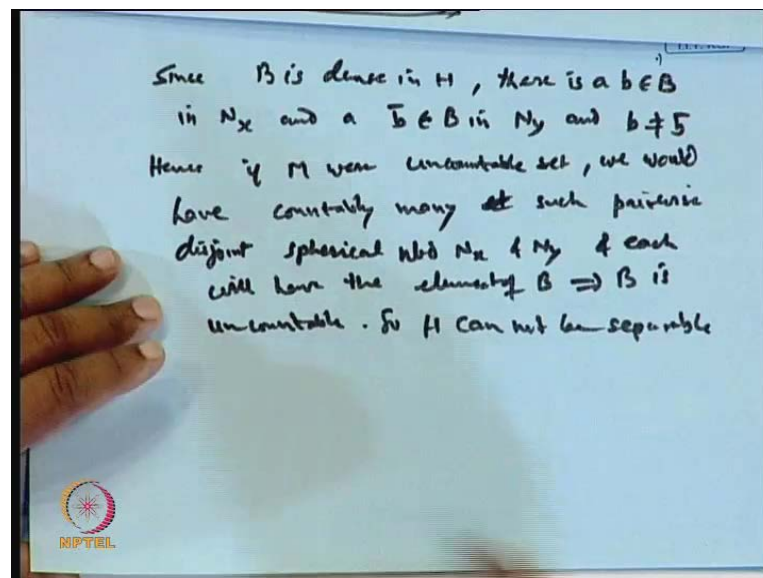 Since B is dense in H, there is a b ∈ B
in Nx and a b̄ ∈ B in Ny and b ≠ b̄
Hence if M were uncountable set, we would
have countably many such pairwise
disjoint spherical nbd Nx & Ny & each
will have the element of B ⇒ B is
uncountable. So H can not be separable
NPTEL